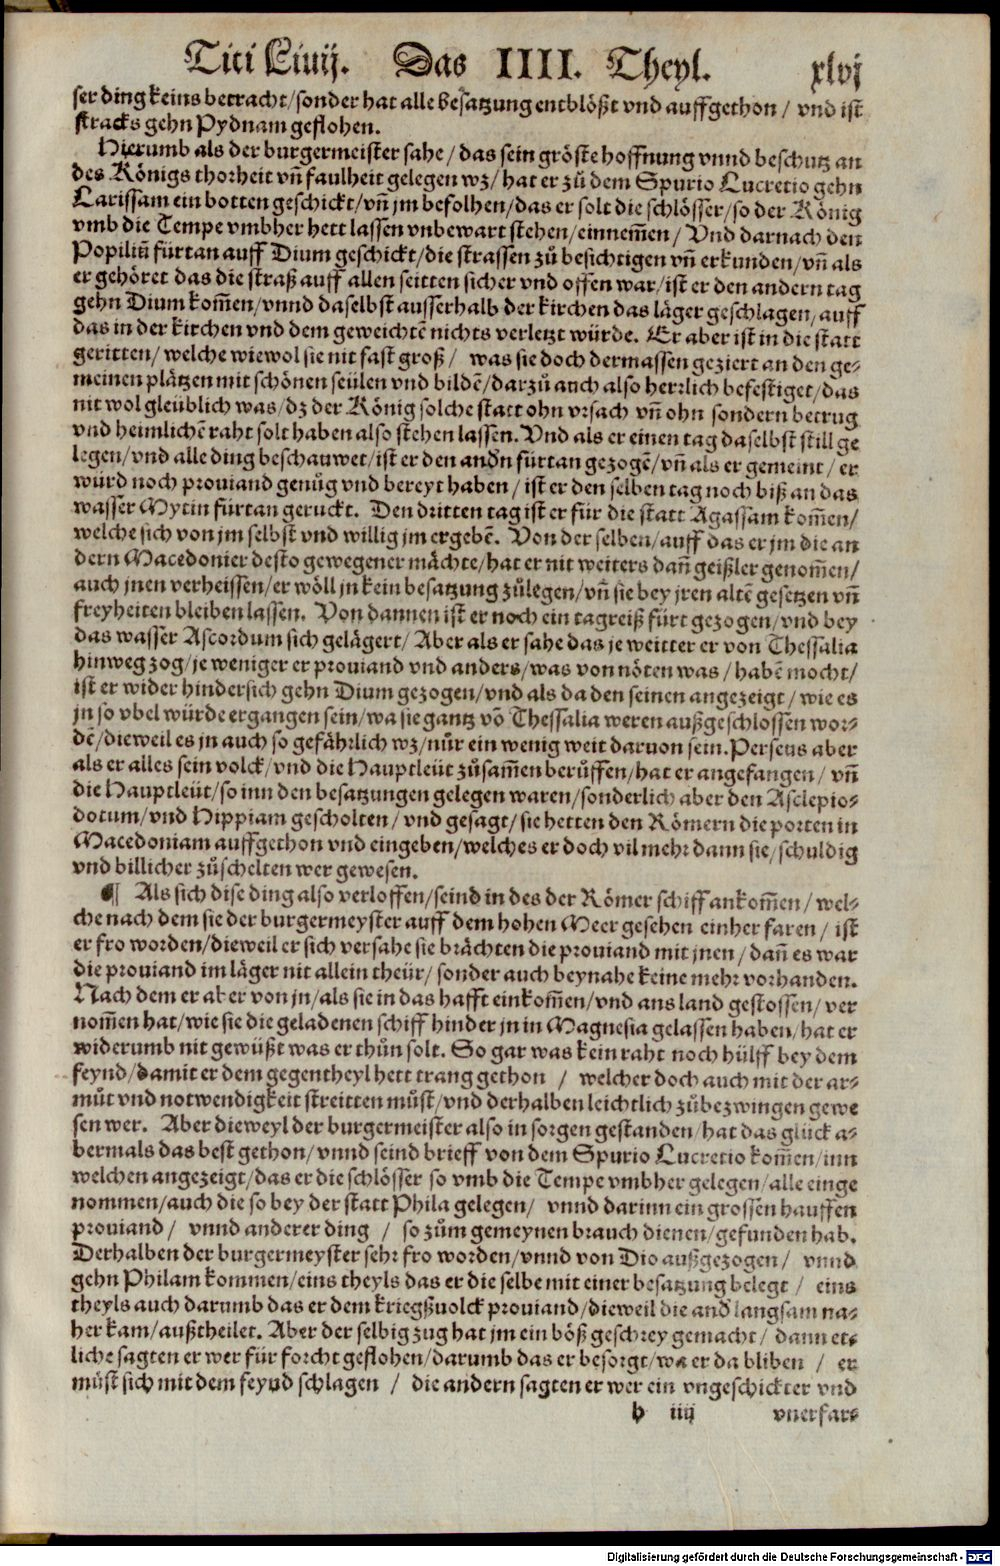 Titi Liuij. Das IIII. Theyl. xlvj
ser ding keins betracht/sonder hat alle besatzung entblößt vnd auffgethon / vnd ist
stracks gehn Pydnam geflohen.
Hierumb als der burgermeister sahe / das sein gröste hoffnung vnnd beschutz an
des Königs thorheit vñ faulheit gelegen wz/ hat er zů dem Spurio Lucretio gehn
Larissam ein botten geschickt/vñ jm befolhen/das er solt die schlösser/so der König
vmb die Tempe vmbher hett lassen vnbewart stehen/einnem̃en / Vnd darnach den
Popiliũ fürtan auff Dium geschickt/die strassen zů besichtigen vñ erkunden/vñ als
er gehöret das die straß auff allen seitten sicher vnd offen war/ist er den andern tag
gehn Dium kom̃en/vnnd daselbst ausserhalb der kirchen das läger geschlagen/auff
das in der kirchen vnd dem geweichtẽ nichts verletzt würde. Er aber ist in die statt
geritten/welche wiewol sie nit fast groß / was sie doch dermassen geziert an den ge-
meinen plätzen mit schönen seülen vnd bildẽ/darzů auch also herrlich befestiget/das
nit wol gleüblich was/dz der König solche statt ohn vrsach vñ ohn sondern betrug
vnd heimlichẽ raht solt haben also stehen lassen. Vnd als er einen tag daselbst still ge
legen/vnd alle ding beschauwet/ist er den andn fürtan gezogẽ/vñ als er gemeint / er
würd noch prouiand genůg vnd bereyt haben / ist er den selben tag noch biß an das
wasser Mytin fürtan geruckt. Den dritten tag ist er für die statt Agassam kom̃en/
welche sich von jm selbst vnd willig jm ergebẽ. Von der selben/auff das er jm die an
dern Macedonier desto gewegener mächte/hat er nit weiters dañ geißler genom̃en/
auch jnen verheissen/er wöll jn kein besatzung zůlegen/vñ sie bey jren altẽ gesetzen vñ
freyheiten bleiben lassen. Von dannen ist er noch ein tagreiß fürt gezogen/vnd bey
das wasser Ascordum sich gelägert/ Aber als er sahe das je weitter er von Thessalia
hinweg zog/je weniger er prouiand vnd anders/was von nöten was / habẽ mocht/
ist er wider hindersich gehn Dium gezogen/vnd als da den seinen angezeigt / wie es
jn so vbel würde ergangen sein/wa sie gantz võ Thessalia weren außgeschlossen wor-
dẽ/dieweil es jn auch so gefährlich wz/nůr ein wenig weit daruon sein. Perseus aber
als er alles sein volck/vnd die Hauptleüt zůsam̃en berůffen/hat er angefangen / vñ
die Hauptleüt/so inn den besatzungen gelegen waren/sonderlich aber den Asclepio-
dotum/vnd Hippiam gescholten / vnd gesagt/sie hetten den Römern die porten in
Macedoniam auffgethon vnd eingeben/welches er doch vil mehr dann sie/schuldig
vnd billicher zůschelten wer gewesen.
¶ Als sich dise ding also verloffen/seind in des der Römer schiff ankom̃en/wel-
che nach dem sie der burgermeyster auff dem hohen Meer gesehen einher faren / ist
er fro worden/dieweil er sich versahe sie brächten die prouiand mit jnen / dañ es war
die prouiand im läger nit allein theür/sonder auch beynahe keine mehr vorhanden.
Nach dem er aber von jn/als sie in das hafft einkom̃en/vnd ans land gestossen/ver
nom̃en hat/wie sie die geladenen schiff hinder jn in Magnesia gelassen haben/hat er
widerumb nit gewüßt was er thůn solt. So gar was kein raht noch hülff bey dem
feynd/damit er dem gegentheyl hett trang gethon / welcher doch auch mit der ar-
můt vnd notwendigkeit streitten můst/vnd derhalben leichtlich zůbezwingen gewe
sen wer. Aber dieweyl der burgermeister also in sorgen gestanden/hat das glück a-
bermals das best gethon/vnnd seind brieff von dem Spurio Lucretio kom̃en/inn
welchen angezeigt/das er die schlösser so vmb die Tempe vmbher gelegen/alle einge
nommen/auch die so bey der statt Phila gelegen/ vnnd darinn ein grossen hauffen
prouiand / vnnd anderer ding / so zům gemeynen brauch dienen/gefunden hab.
Derhalben der burgermeyster sehr fro worden/vnnd von Dio außgezogen / vnnd
gehn Philam kommen/eins theyls das er die selbe mit einer besatzung belegt / eins
theyls auch darumb das er dem kriegßuolck prouiand/dieweil die and langsam na-
her kam/außtheilet. Aber der selbig zug hat jm ein böß geschrey gemacht / dann et-
liche sagten er wer für forcht geflohen/darumb das er besorgt/wa er da bliben / er
müst sich mit dem feynd schlagen / die andern sagten er wer ein vngeschickter vnd
h iiij vnerfar-
Digitalisierung gefördert durch die Deutsche Forschungsgemeinschaft - DFG